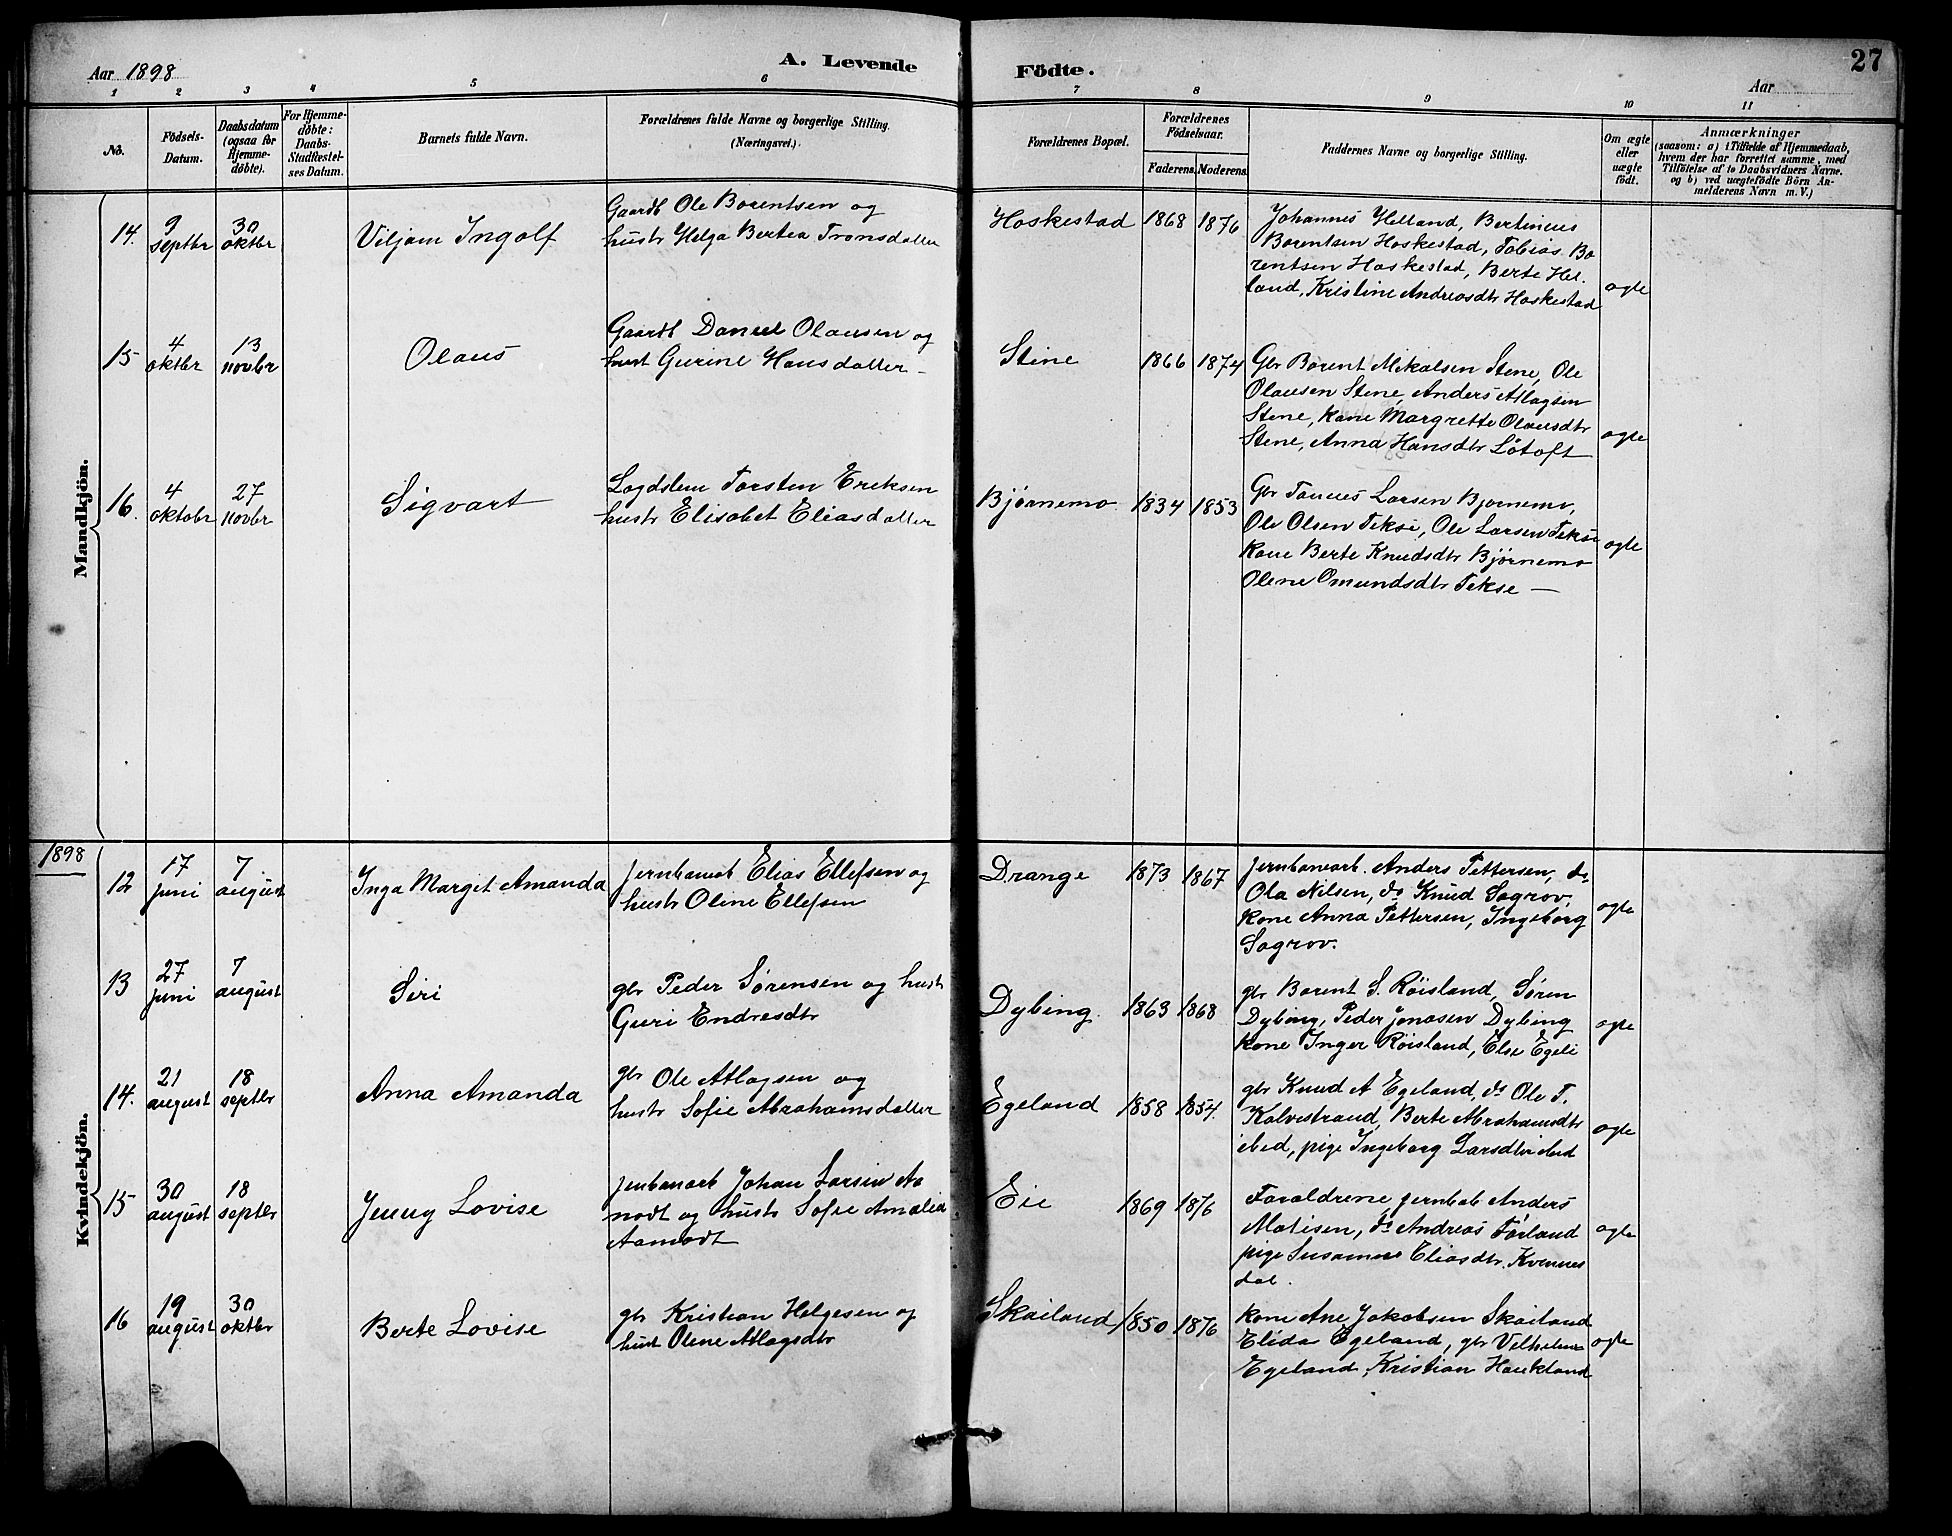 Aar 1898
A. Levende
Födte.
Aar
27
1 2 3 4 5 6 7 8 9 10 11
No.
Födsels-
Datum.
Daabsdatum
(ogsaa for
Hjemme-
døbte).
For Hjemme-
døbte:
Daabs-
Stadfæstel-
ses Datum.
Barnets fulde Navn.
Forældrenes fulde Navne og borgerlige Stilling.
(Næringsvei.)
Forældrenes Bopæl.
Forældrenes
Födselsaar.
Faderens. Moderens.
Faddernes Navne og borgerlige Stilling.
Om ægte
eller
uægte
födt.
Anmærkninger
(saasom: a) i Tilfælde af Hjemmedaab,
hvem der har forrettet samme, med
Tilföielse af to Daabsvidners Navne.
og b) ved uægtefödte Börn An-
melderens Navn m. V.)
Mandkjön.
14.
9
septbr
30
oktbr
Viljam Ingolf
Gaardb Ole Borentsen og
hustr Helga Bertea Tronsdatter
Hoskestad
1868
1876
Johannes Helland, Bertinius
Borentsen Hoskestad, Tobias Bo
rentsen Hoskestad, Berte Hel.
land, Kristine Andreasdtr Hoskestad
ægte
15
4
oktbr
13
novbr
Olaus
Gaardb Daniel Olausen og
hust Gurine Hansdatter
Stine
1866
1874
Gbr Borent Mikalsen Stene, Ole
Olausen Stene, Anders Atlagsen
Stene, kone Margrette Olausdtr
Stene, Anna Hansdtr Løtoft
ægte
16.
4
oktobr
27
novbr
Sigvart
Lægdslem Torsten Eriksen
hustr Elisabet Eliasdatter
Bjørnemo
1834
1853
Gbr Tønnes Larsen Bjørnemo,
Ole Olsen Tekse, Ole Larsen Tekse
kone Berte Knudsdtr Bjørnemo
Olene Omundsdtr Tekse
ægte
1898
Kvindekjön.
12
17
juni
7
august
Inga Margit Amanda
jernbanearb Elias Ellefsen og
hustr Oline Ellefsen
Drange
1873
1867
jernbanearb. Anders Pettersen, do
Ola Nilsen, do Knud Sagrov,
kone Anna Pettersen, Ingeborg
Sagrov.
ægte
13
27
juni
7
august
Siri
gbr Peder Sørensen og hustr
Guri Endresdtr
Dybing.
1863
1868
gbr Borent S. Røisland, Søren
Dybing, Peder Jonasen Dybing
kone Inger Røisland, Else Egeli
ægte
14.
21
august
18
septbr
Anna Amanda
gbr Ole Atlagsen og
hustr Sofie Abrahamsdatter
Egeland
1858
1854.
gbr Knud A Egeland, do Ole T.
Kalvestrand, Berte Abrahamsdtr
ibid, pige Ingeborg Larsdtr ibid
ægte
15
30
august
18
septbr
Jenny Lovise
jernbanearb Johan Larsen Aa
modt og hustr Sofie Amalia
Aamodt
Eie
1869
1876
Forældrene, jernbab Anders
Matisen, do Andreas Førland
pige Susanne Eliasdtr. Kvinnes
dal.
ægte
16
19
august
30
oktbr
Berte Lovise
gbr Kristian Helgesen og
hust Olene Atlagsdtr
Skailand
1850
1876
kone Ane Jakobsen Skailand
Elida Egeland, gbr Vilhelm
Egeland, Kristian Haukland
ægte